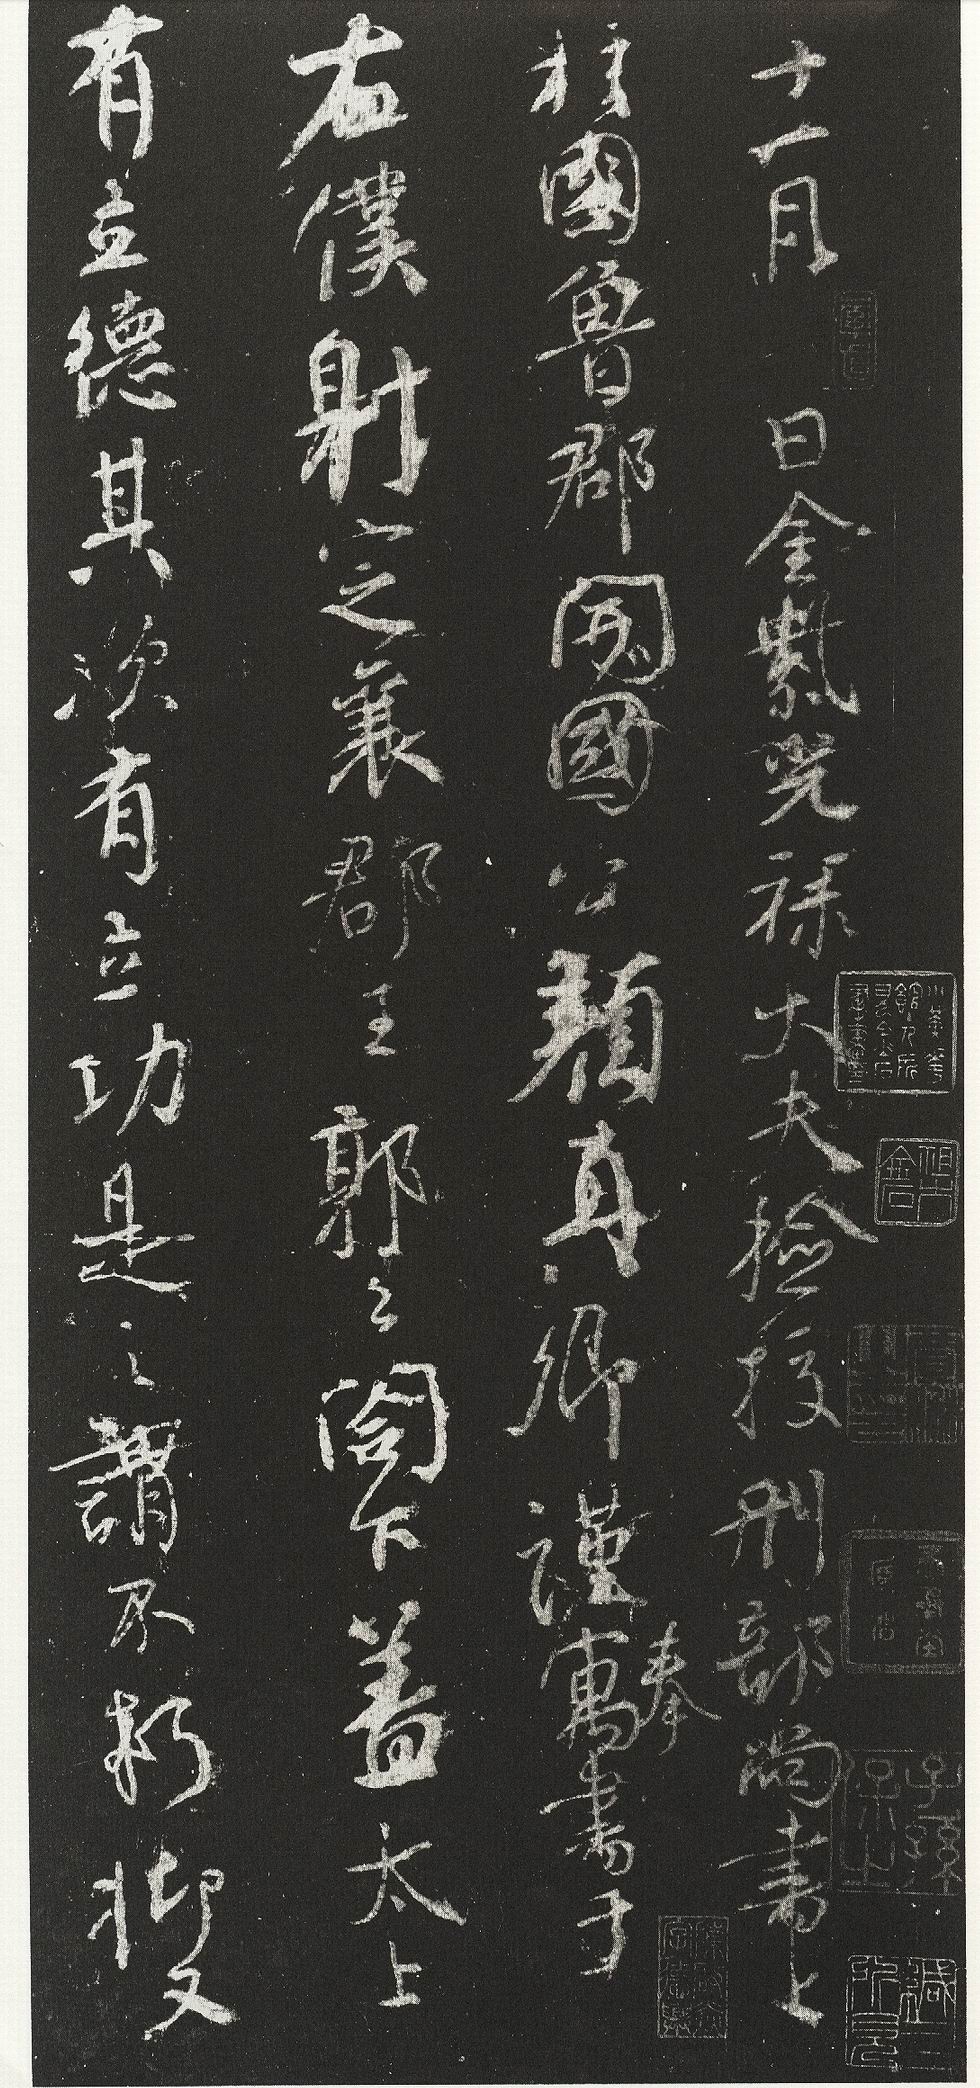 十一月 日金紫光祿大夫檢校刑部尚書上
柱國魯郡開國公顏真卿謹奉寓書于
右僕射定襄郡王郭公閤下蓋太上
有立德其次有立功是之謂不朽抑又
子孫保之